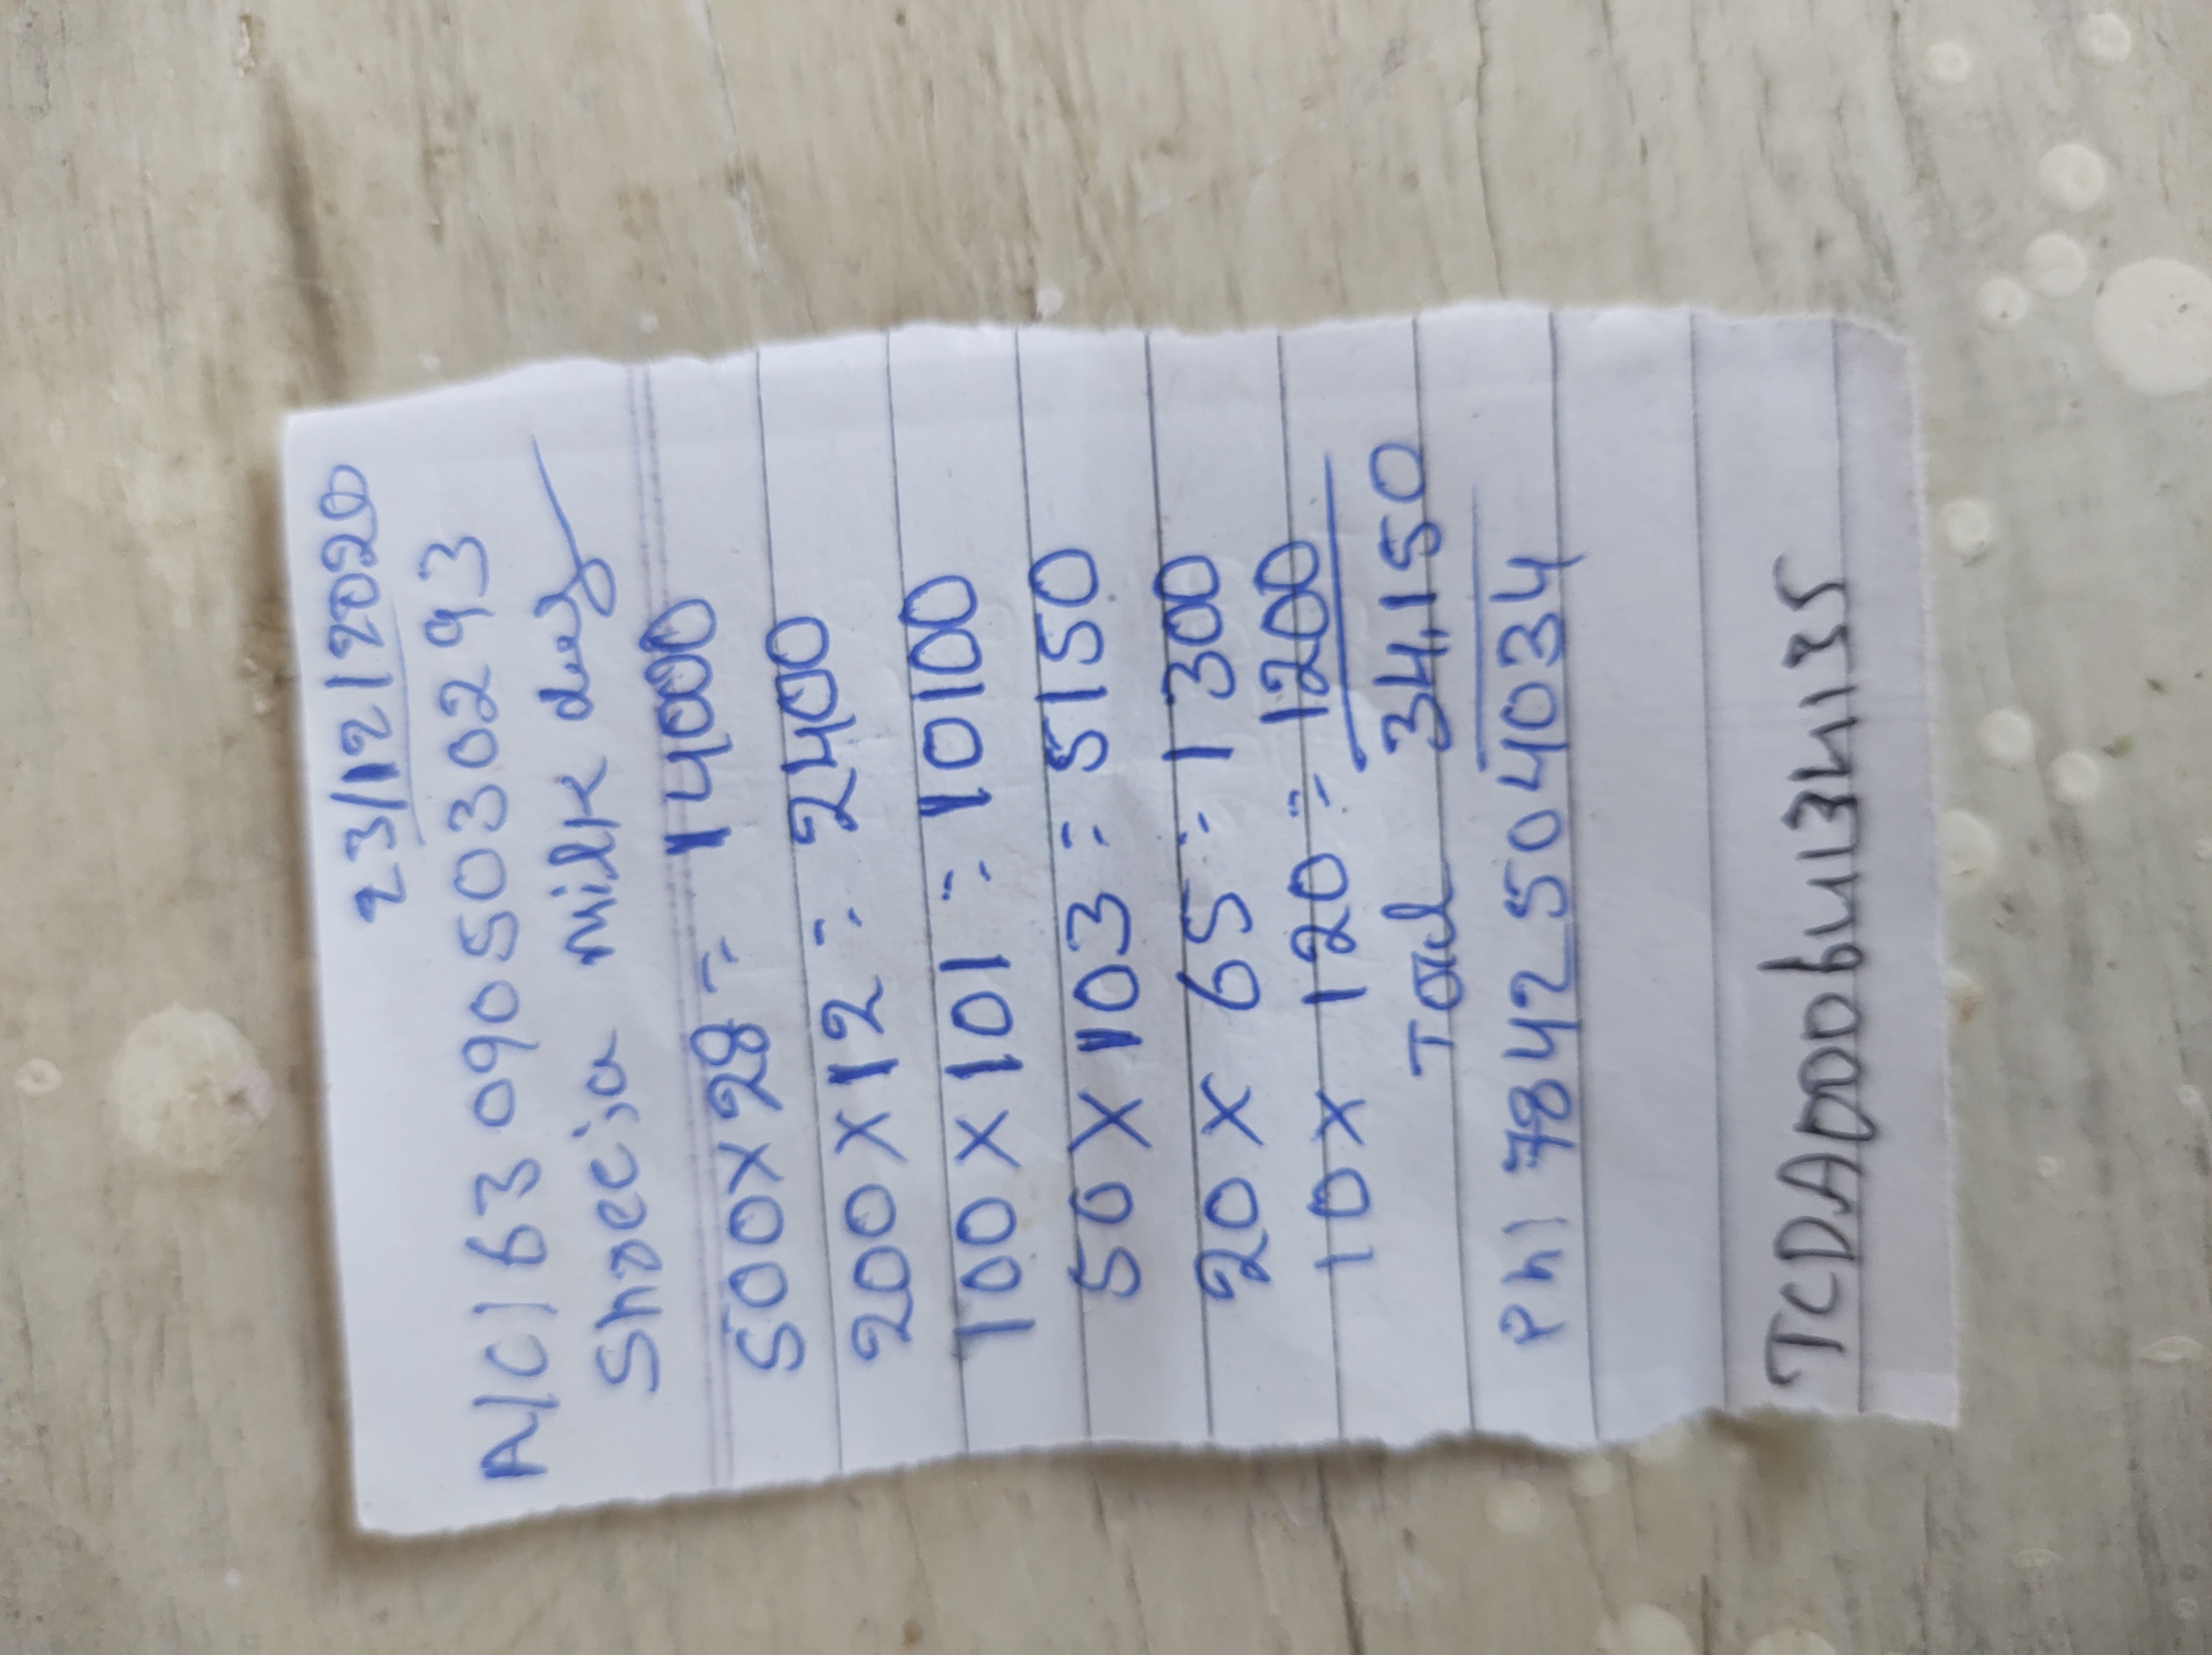 23/12/2020
A/C) 630905030293
Shreeja Milk
500 X 28 = 14000
200 X 12 = 2400
100 X 101 = 10100
50 X 103 = 5150
20 X 65 = 1300
10 X 120 = 1200
Total 34,150
Ph! 7842504034
TCDA00064134135